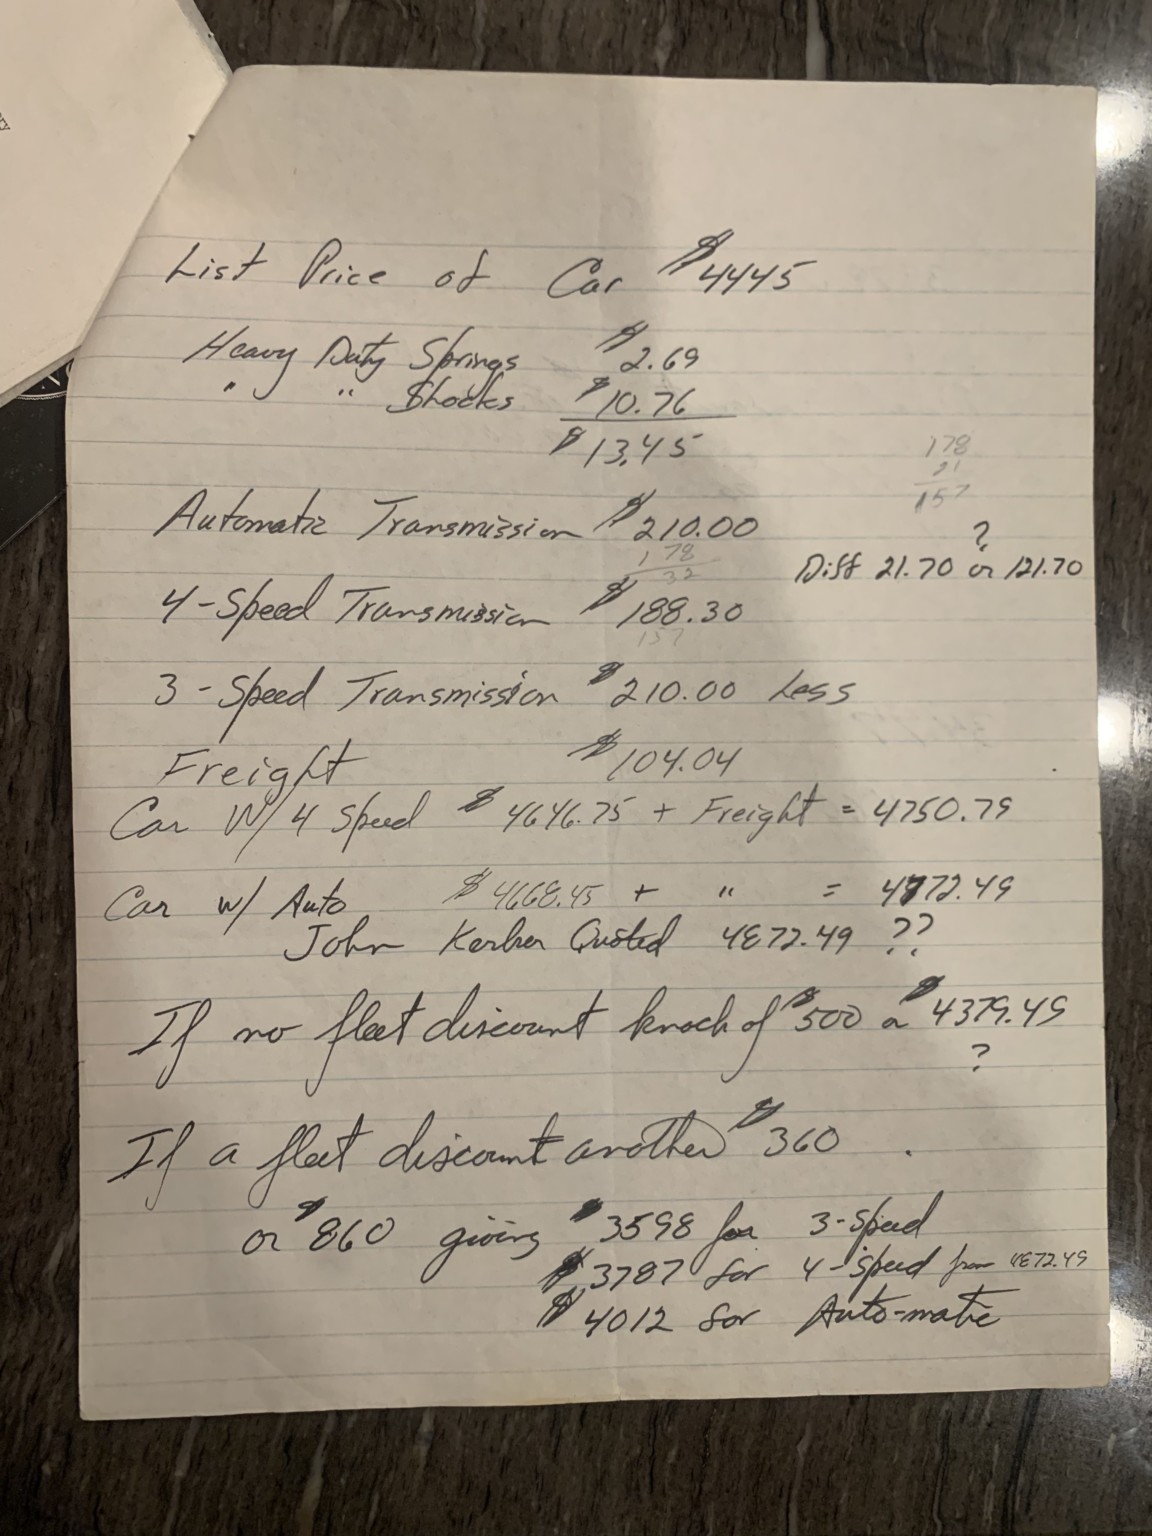 List Price of Car $4445
Heavy Duty Springs $2.69
" " Shocks $10.76
$13.45
178
21
157
Automatic Transmission $210.00
?
178
32
Diff 21.70 or 121.70
4-Speed Transmission $188.30
157
3-Speed Transmission $210.00 Less
Freight $104.04
Car W/ 4 Speed $4646.75 + Freight = 4750.79
Car w/ Auto $4668.45 + " = 4772.49
John Kerber Quoted 4872.49 ??
If no fleet discount knock of $500 or $4379.49
?
If a fleet discount another $360
or $860 giving $3598 for 3-Speed
$3787 for 4-speed from 4872.49
$4012 for Auto-matic